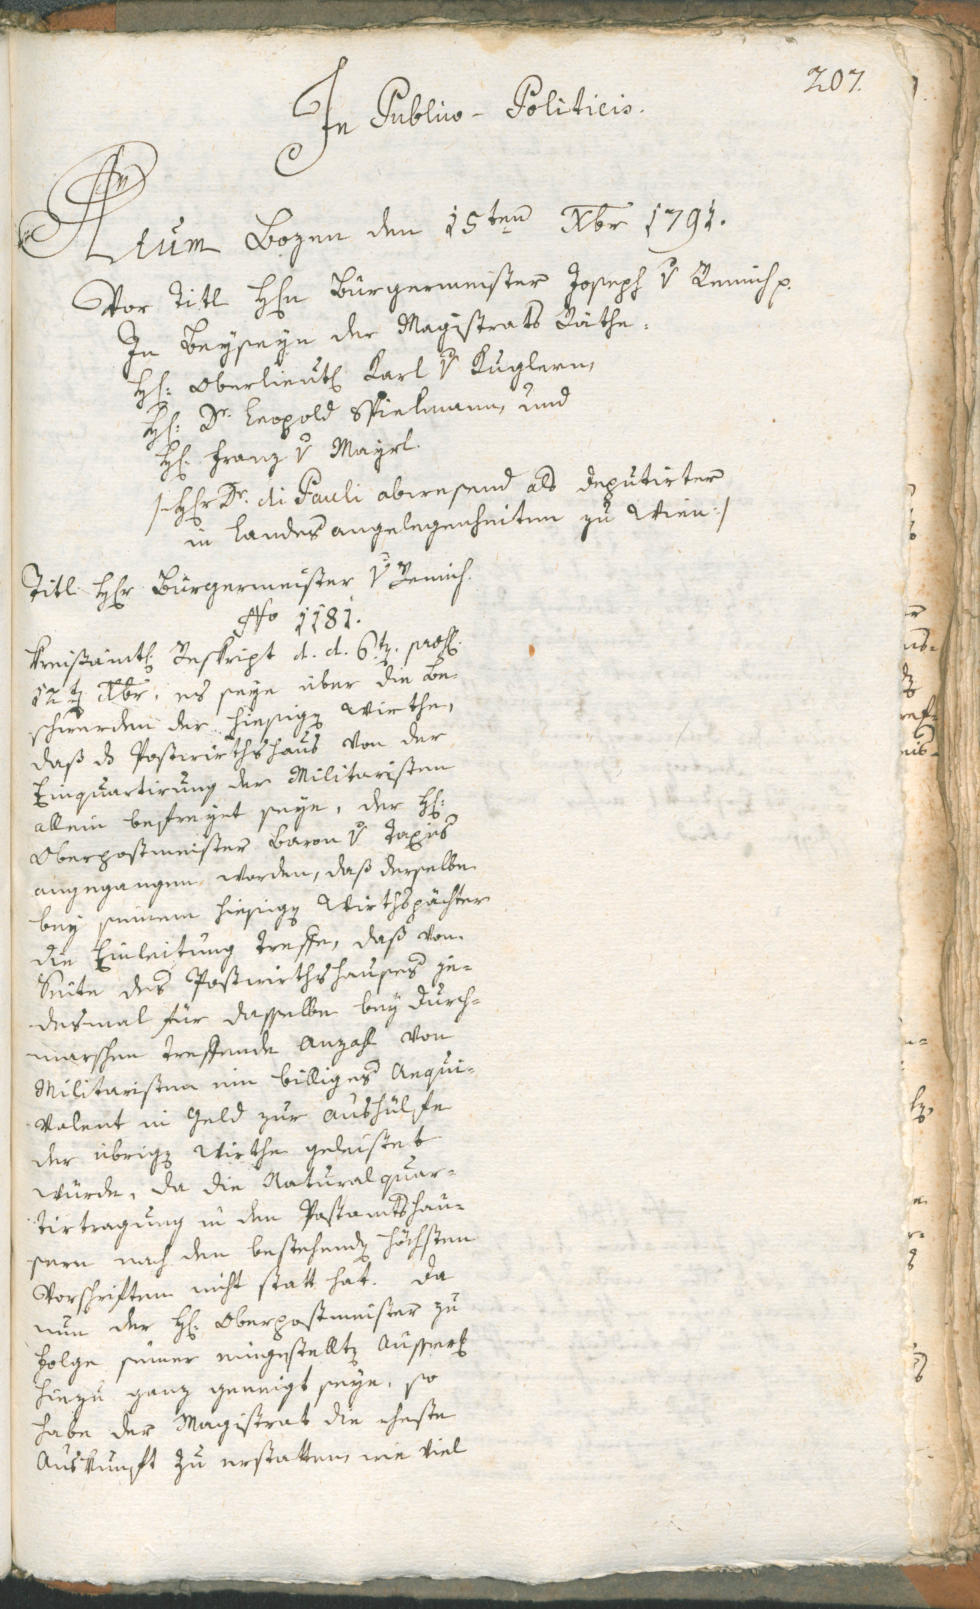 207.
In Publico-Politicis.
Actum Bozen den 15ten Xbr 1791.
Vor Titl. Hhn Bürgermeister Joseph v Remich p.
In Beyseyn der Magistrats Räthe:
Hl: Oberlieut. Karl v Kuglern,
Hl: Dr. Leopold Spielmann, und
Hl. Franz v Mayrl.
/: Hhr Dr. di Pauli abwesend als Deputirter
in Landesangelegenheiten zu Wien :/
Titl. Hhr Bürgermeister v Remich.
No 1181.
Kreisamtl. Reskript d. d. 6t. prss.
12t Xbr. es seye über die Be-
schwerden der hiesig. Wirthe,
daß ds Postwirthshaus von der
Einquartirung der Militaristen
allein befreyet seye, der Hl:
Oberpostmeister Baron v Taxis
angegangen worden, daß derselbe
bey seinem hiesig. Wirthspächter
die Einleitung treffe, daß von
Seite des Postwirthshauses je-
desmal für dasselbe bey Durch-
marschen treffende Anzahl von
Militaristen ein billiges Aequi-
valent in Geld zur Aushülfe
der übrig. Wirthe geleistet
würde, da die Naturalquar-
tirtragung in den Postamtshäu-
sern nach den bestehend. höchsten
Vorschriften nicht statt hat. Da
nun der Hl. Oberpostmeister zu
Folge seiner eingestellt. Aüsserl.
hiezu ganz geneigt seye, so
habe der Magistrat die eheste
Auskunft zu erstatten, wie viel